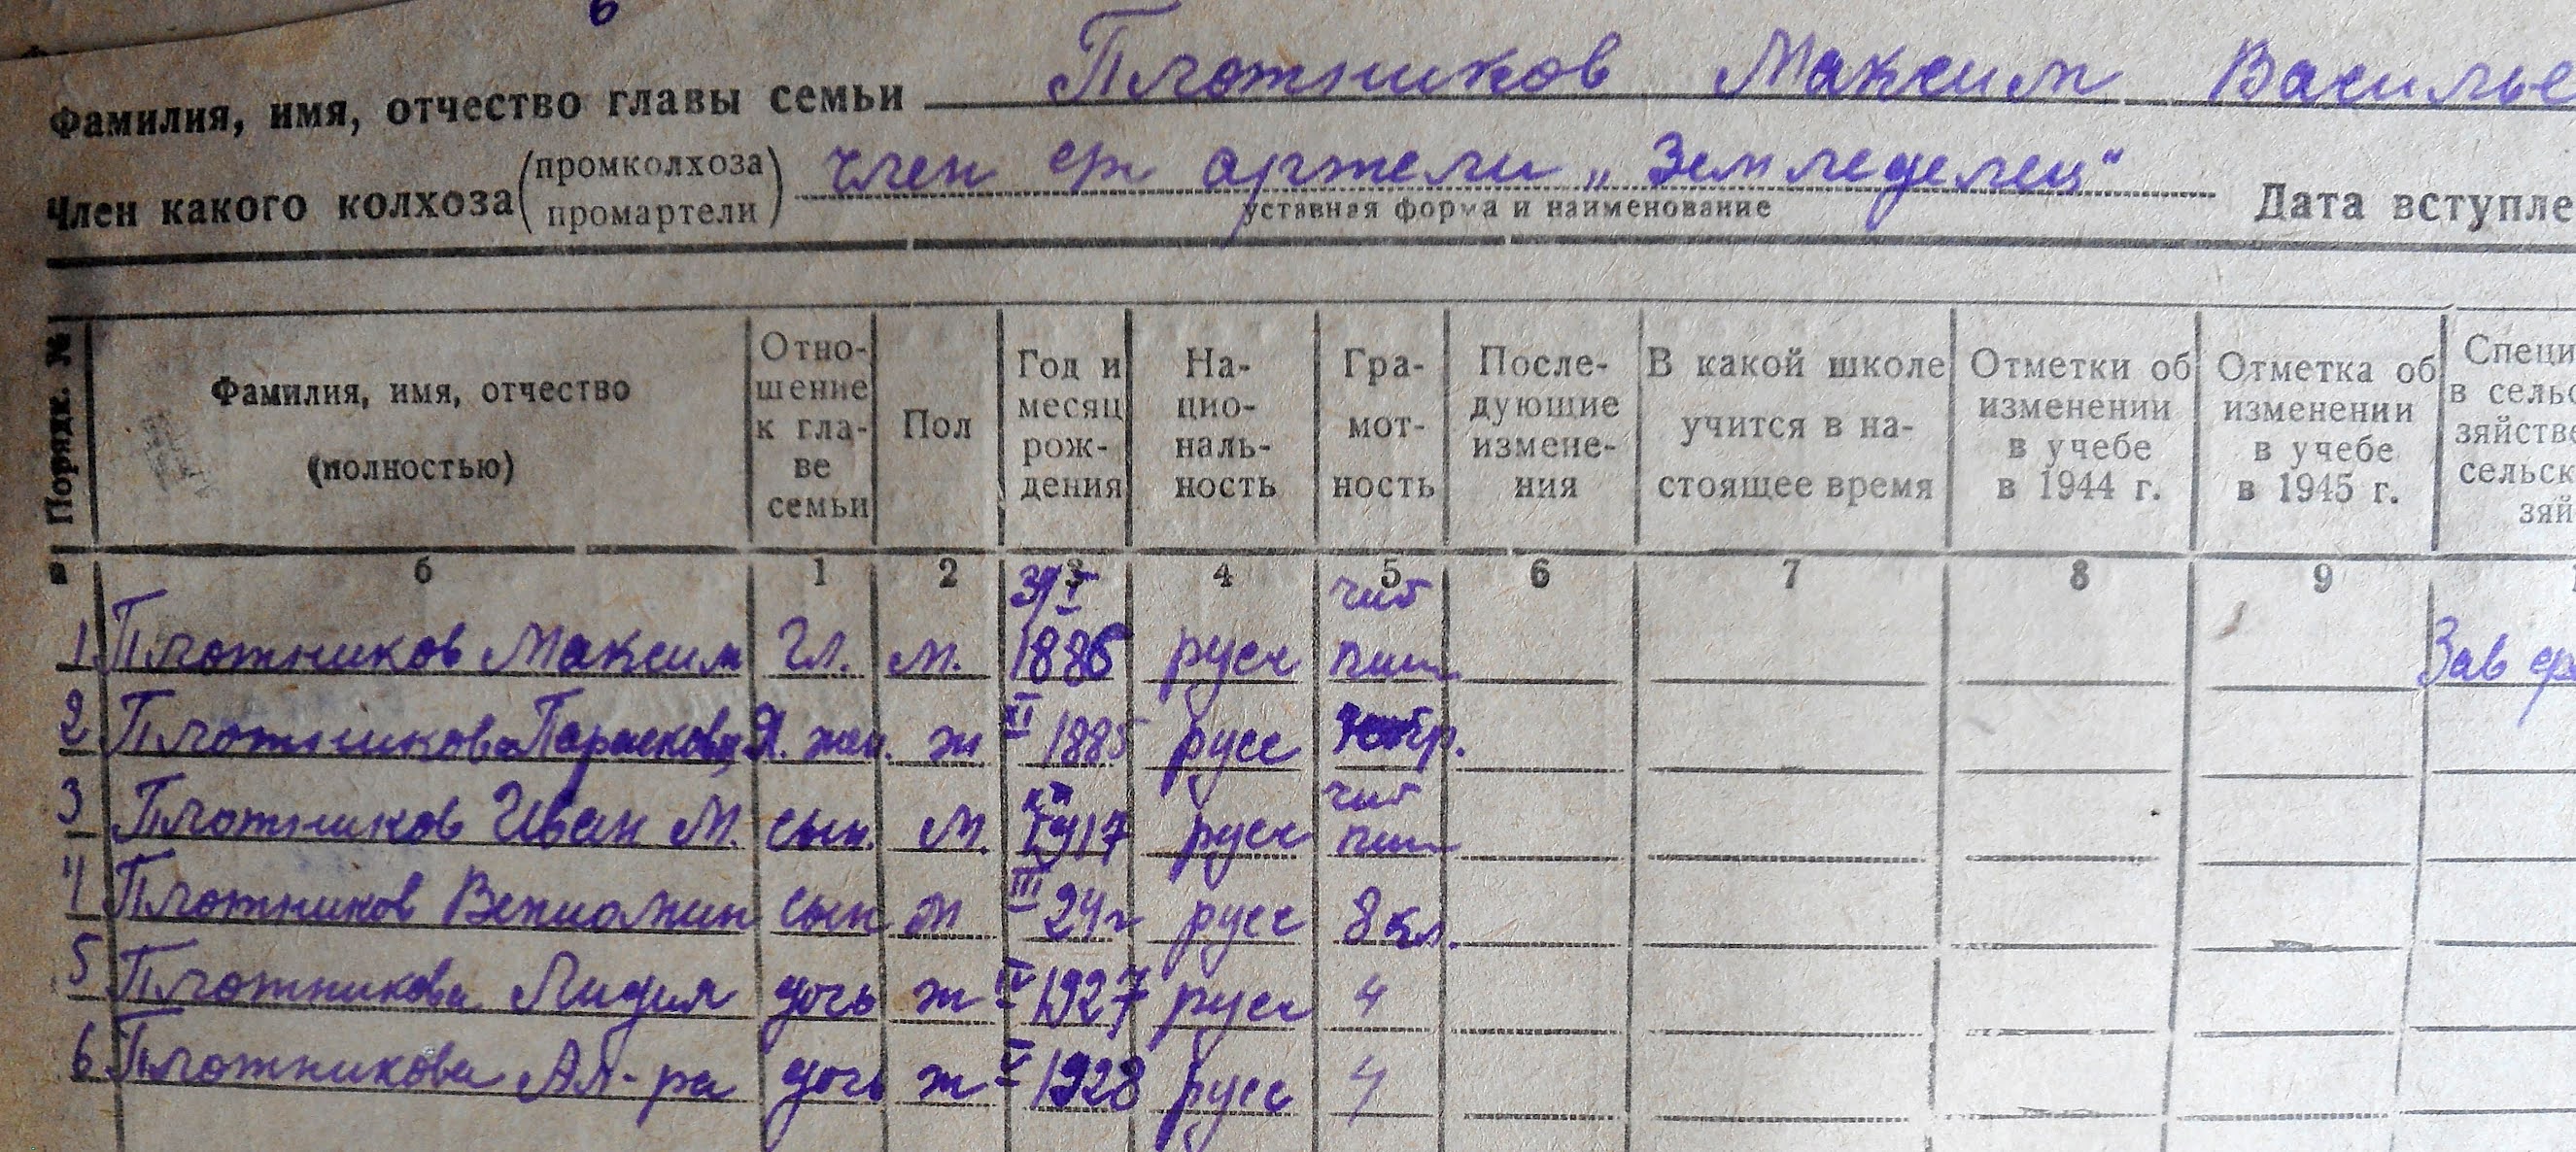 Фамилия, имя, отчество главы семьи Плотников Максим Василье
Член какого колхоза (промколхоза промартели) член с/х артели „Земледелец“ Дата вступле
уставная форма и наименование
Порядк. № Фамилия, имя, отчество (полностью) Отно-шение к гла-ве семьи Пол Год и месяц рож-дения На-цио-наль-ность Гра-мот-ность После-дующие измене-ния В какой школе учится в на-стоящее время Отметки об изменении в учебе в 1944 г. Отметка об изменении в учебе в 1945 г. Специ в сельс зяйстве сельск зяй
б 1 2 3 4 5 6 7 8 9
1 Плотников Максим Гл. м. 1886 русс чит пиш Зав
2 Плотникова Парасковья Я. жен. ж XI 1885 русс
3 Плотников Иван М. сын. м. 1917 русс чит пиш
4 Плотников Вениомин сын м III 24г русс 8 кл.
5 Плотникова Лидия дочь ж IV 1927 русс 4
6 Плотникова Ал-ра дочь ж V 1928 русс 4